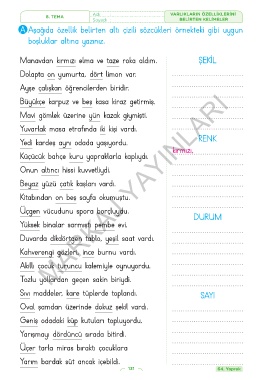 5. TEMA
VARLIKLARIN ÖZELLİKLERİNİ
BELİRTEN KELİMELER
A Aşağıda özellik belirten altı çizili sözcükleri örnekteki gibi uygun
boşluklar altına yazınız.
Manavdan kırmızı elma ve taze roka aldım.
Dolapta on yumurta, dört limon var.
Ayşe çalışkan öğrencilerden biridir.
Büyükçe karpuz ve beş kasa kiraz getirmiş.
Mavi gömlek üzerine yün kazak giymişti.
Yuvarlak masa etrafında iki kişi vardı.
Yedi kardeş aynı odada yaşıyordu.
Küçücük bahçe kuru yapraklarla kaplıydı.
Onun altıncı hissi kuvvetliydi.
Beyaz yüzü çatık kaşları vardı.
Kitabından on beş sayfa okumuştu.
Üçgen vücudunu spora borçluydu.
Yüksek binalar sarmıştı pembe evi.
Duvarda dikdörtgen tablo, yeşil saat vardı.
Kahverengi gözleri, ince burnu vardı.
Akıllı çocuk turuncu kalemiyle oynuyordu.
Tozlu yollardan geçen sakin biriydi.
Sıvı maddeler, kare tüplerde toplandı.
Oval şamdan üzerinde dokuz şekil vardı.
Geniş odadaki küp kutuları topluyordu.
Yarışmayı dördüncü sırada bitirdi.
Üçer tarla miras bıraktı çocuklara
Yarım bardak süt ancak içebildi.
ŞEKİL
RENK
kırmızı,
DURUM
SAYI
MARKAJ YAYINLARI